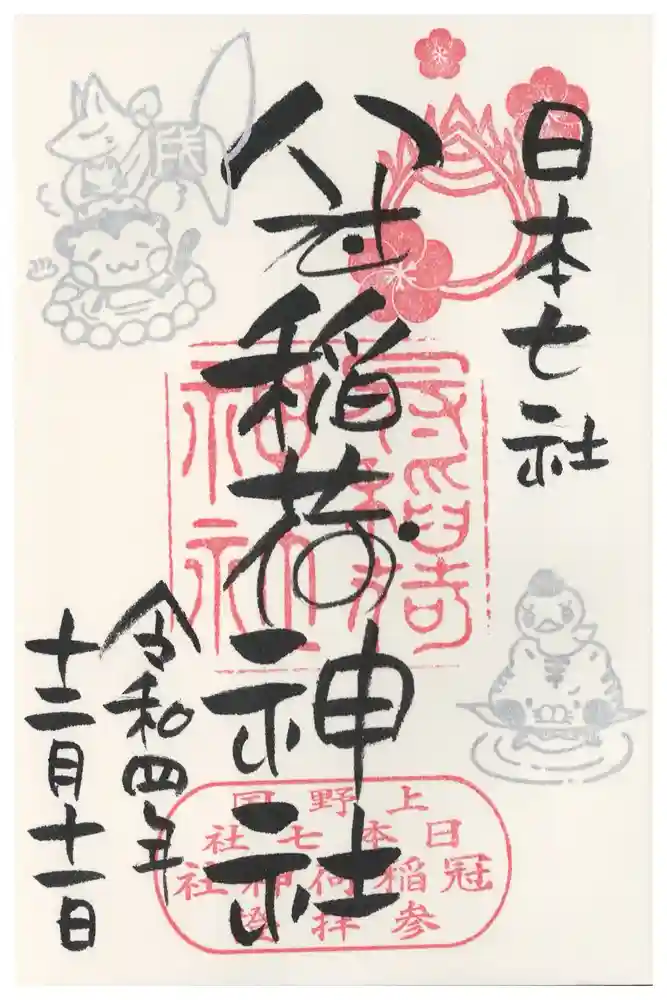 日本七社
冠稲荷神社
令和四年
十二月十一日
冠稲荷
神社
上野国
日本七社
冠稲荷神社
参拝